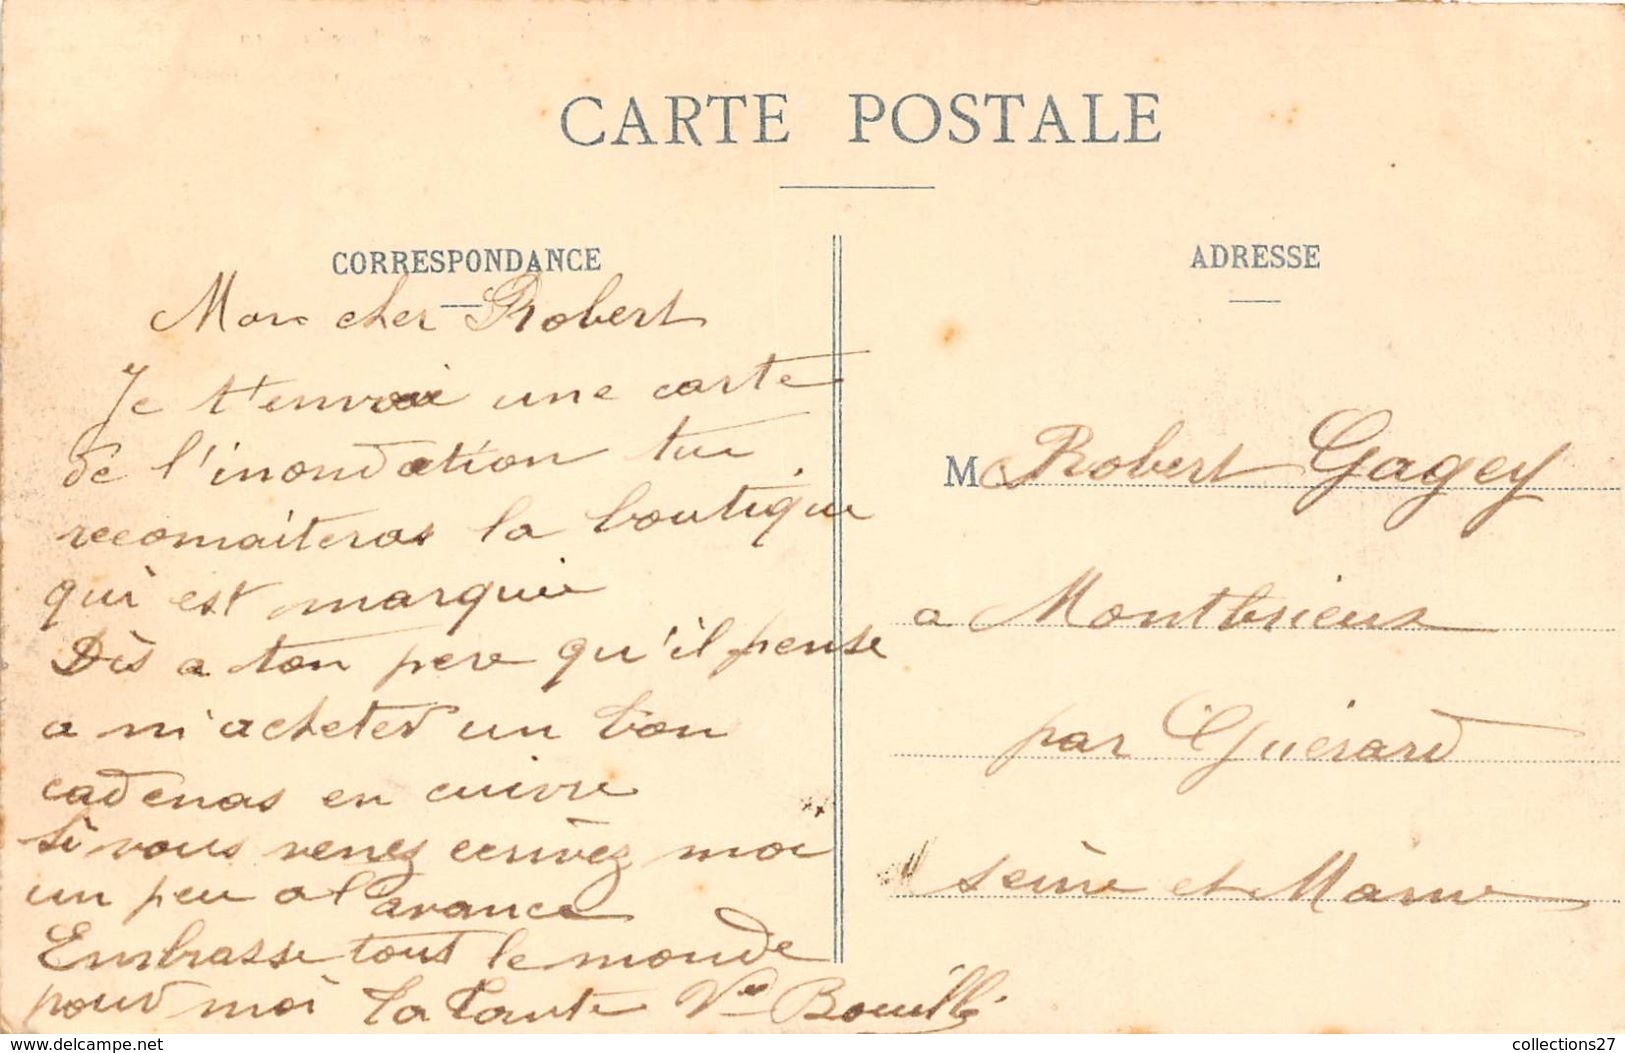 CARTE POSTALE
CORRESPONDANCE
Mon cher Robert
Je t'envoie une carte
de l'inondation tu
reconnaiteras la boutique
qui est marquie
Dis a ton pere qu'il pense
a m'acheter un bon
cadenas en cuivre
si vous venez ecrivez moi
un peu a l'avance
Embrasse tout le monde
pour moi ta tante Vve
ADRESSE
M Robert Gagey
a Montbrieux
par Guérard
seine et Marne
collections27